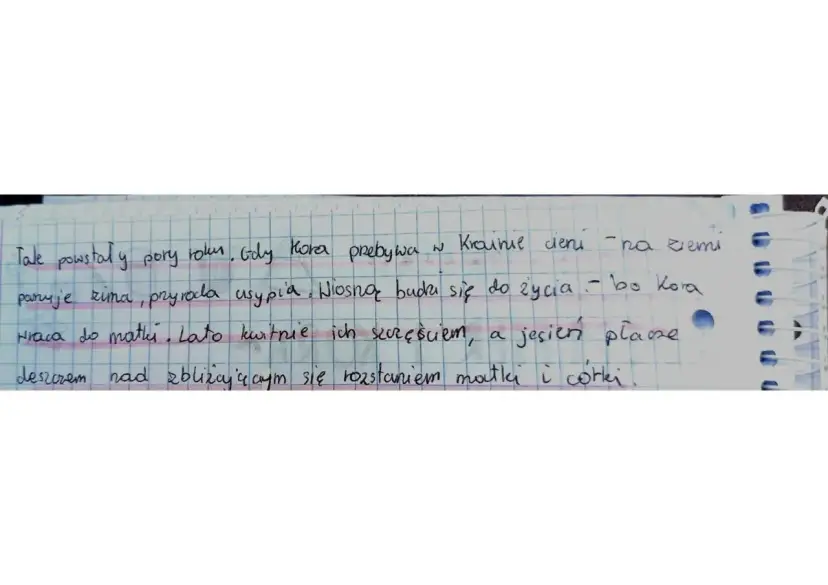 Tak powstały pory roku. Gdy Kora przebywa w Krainie cieni - na ziemi
panuje zima, przyroda usypia. Wiosną budzi się do życia - bo Kora
wraca do matki. Lato kwitnie ich szczęściem, a jesień płacze
deszczem nad zbliżającym się rozstaniem matki i córki.